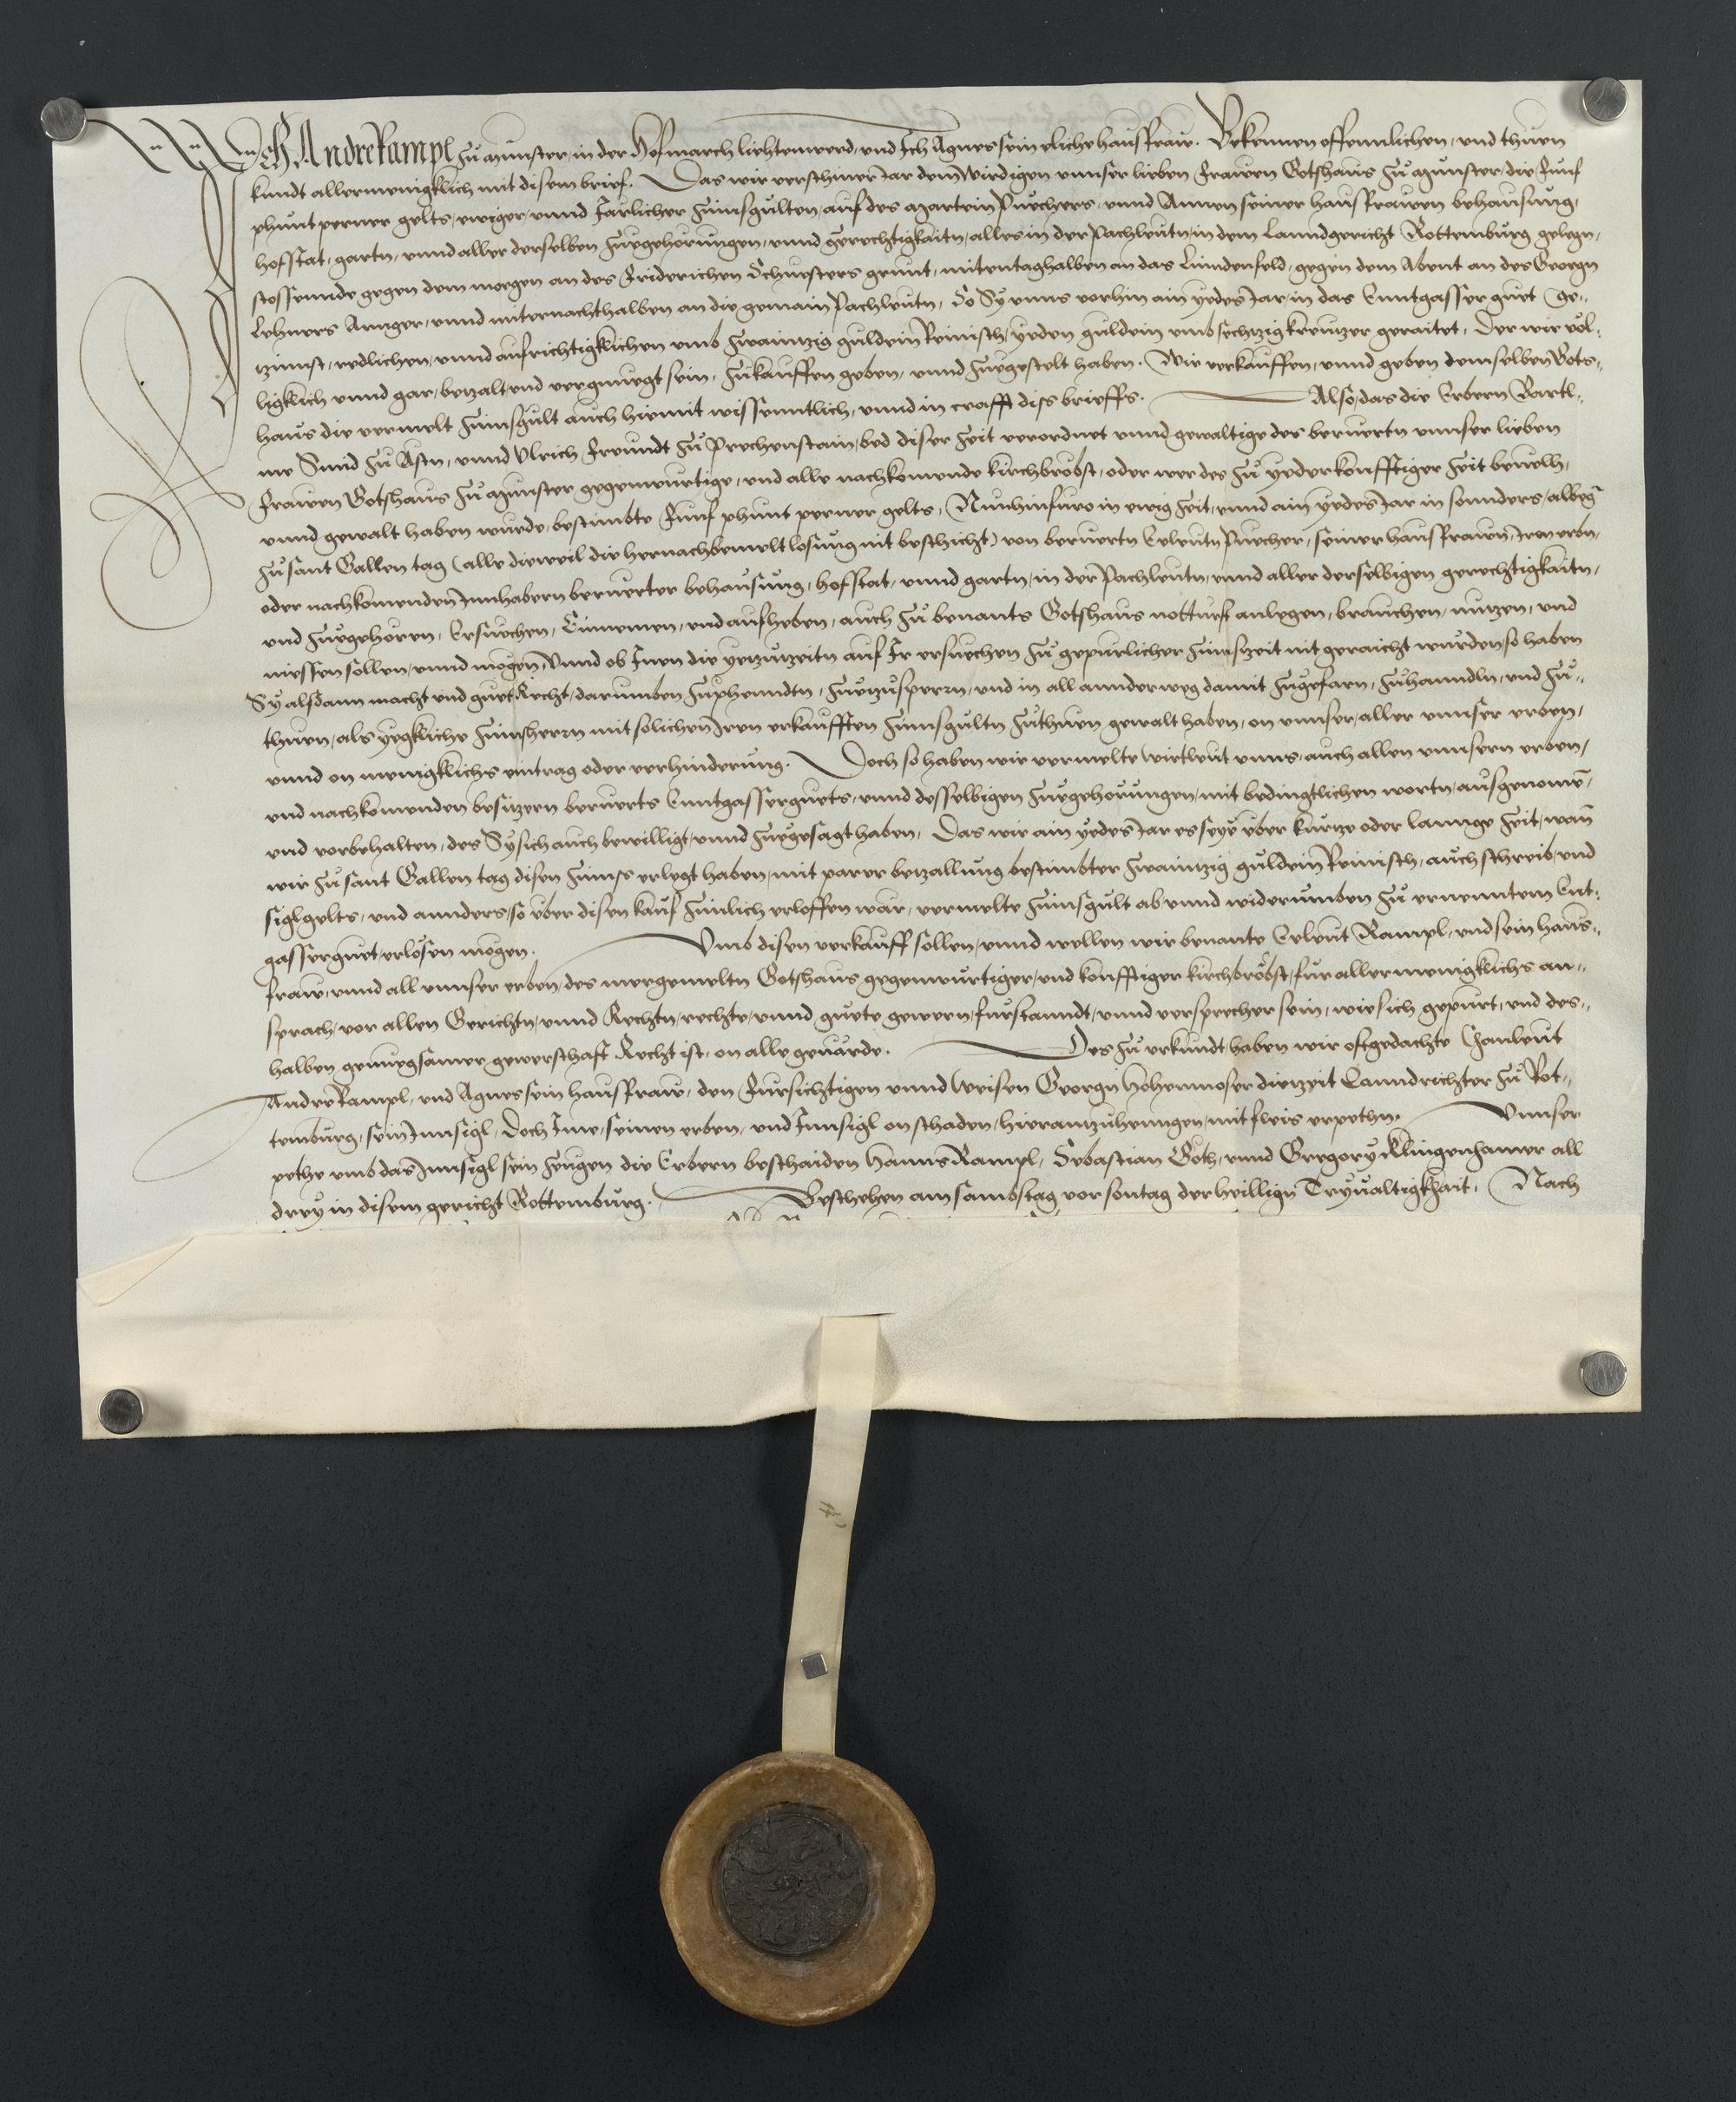 Ich Andre Rampl zu Munster, in der Hofmarch liechtenwerd, und Ich Agnes sein eliche hausfraw. Bekennen offennlichen, und thuen
kundt allermenigklich mit disem brief. Das wir verschiner Jar dem Wirdigen unnser lieben frawen Gotshaus zu Munster, die Funf
phunt perner gelts, ewiger, unnd Jarlicher zinnsgulten, auf des Martein Puechers, unnd Annen seiner hausfrawen behausung,
hofstat, gartn, unnd aller derselben zuegehorungen, unnd gerechtigkaitn, alles in der Pachleutn, in dem Lanndgericht Rottemburg gelegn,
stossennde gegen dem morgen an des Friderichen Schuesters grunt, mitentaghalben an das Lindenfeld, gegen dem Abent an des Georgn
Lehners Annger, unnd miternachthalben an die gemain Pachleutn, So Sy unns vorhin ain yedes Jar, in das Enntgasser guet ge-
tzinnst, redlichen, unnd aufrichtigklichen umb zwaintzig guldein Reinisch, yeden guldein umb sechtzig kreutzer geraitet, Der wir vol-
ligklich unnd gar, betzalt, und vergnuegt sein, zukauffen geben, unnd zuegestelt haben. Wir verkauffen, unnd geben demselben Gots-
haus die vermelt zinnsgult auch hiemit wissenntlich, unnd in crafft diss brieffs. Also, das die Erbern Bartl-
me Smid zu Astn, unnd Ulrich Freundt zu Prechenstain, bed diser zeit verordnet unnd gewaltige des beruertn unnser lieben
frawen Gotshaus zu Munster gegenwurtige, und alle nachkomende kirchbrobst, oder wer des zu yeder konfftiger zeit bevelh,
unnd gewalt haben wurde, bestimbte Funf phunt perner gelts, Nun hinfuro in ewig zeit, unnd ain yedes Jar in sonnders, albeg
zu sant Gallen tag (alle dieweil die hernachbemelt losung nit beschicht) von beruertn Eeleutn Puecher, seiner hausfrawen, Iren erbn,
oder nachkomenden Innhabern beruerter behausung, hofstat, unnd gartn, in der Pachleutn, unnd aller derselbigen gerechtigkaitn,
und zuegehoren, Ersuechen, Einnemen, und aufheben, auch zu benants Gotshaus notturfft anlegen, brauchen, nutzen, und
niessen sollen, unnd mogen, Unnd ob Inen die yetzuzeitn auf Ir ersuechen zu gepurlicher zinnszeit nit geraicht wurden, so haben
Sy alsdann macht und guet Recht, darumben zuphenndtn, zuetzusperrn, und in all annder weg damit zugefarn, zuhanndln, und zu-
thuen, als yegkliche zinnsherrn mit solichen Iren erkaufften zinnsgultn zuthuen gewalt haben, on unnser, aller unnser erben,
unnd on menigklichs eintrag oder verhinderung. Doch so haben wir vermelte wirtleut unns, auch allen unnsern erben,
und nachkomenden besitzern beruerts Enntgasserguets, unnd desselbigen zuegehorungen, mit bedingtlichen wortn, ausgenomen,
und vorbehalten, des Sy sich auch bewilligt, unnd zuegesagt haben, Das wir ain yedes Jar es seye uber kurtze oder lannge zeit, wan
wir zu sant Gallen tag disen zinnss erlegt haben, mit parer betzallung bestimbter zwaintzig guldein Reinisch, auch schreib, und
siglgelts, und annders, so uber disen kauf zimlich erloffen war, vermelte zinnsgult ab unnd widerumben zu ernenntem Ent-
gasserguet, erlosen mogen. Umb disen verkauff sollen, unnd wellen wir benante Eeleut Rampl, und sein haus-
fraw, unnd all unnser erben, des mergemeltn Gotshaus gegenwurtiger, und konfftiger kirchbrobst, fur allermenigklichs an-
sprach, vor allen Gerichtn, unnd Rechtn, rechte, unnd guete gewern, furstanndt, unnd versprecher sein, wie sich gepurt, und des-
halben genuegsamer gewerschaft Recht ist, on alle gevarde. Des zu urkundt haben wir oftgedachte Conleut
Andre Rampl, und Agnes sein hausfraw, den Fursichtigen unnd Weisen Georgn Hohenmoser dietzeit Lanndrichter zu Rot-
temburg, sein Innsigl, Doch Ime, seinen erben, und Innsigl on schaden, hierantzuhenngen, mit fleis erpethn. Unnser
pethe umb das Innsigl sein zeugen die Erbern beschaiden Hanns Rampl, Sebastian Goth, unnd Gregory Klingenhamer all
drey in disem gericht Rottemburg. Beschehen am sambstag vor sontag der heillign Tryvaltigkhait, Nach